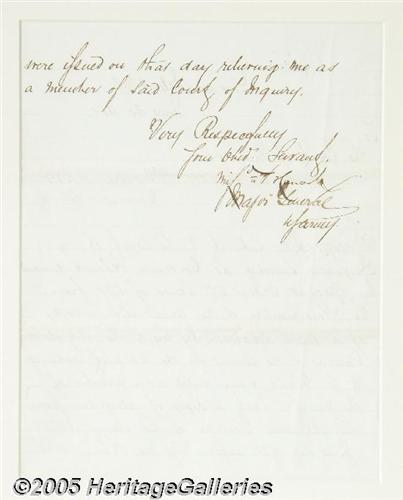 were issued on that day relieving me as
a member of said Court of Inquiry.
Very Respectfully
Your Obdt Servant
Major General
U.S. Army
©2005 HeritageGalleries